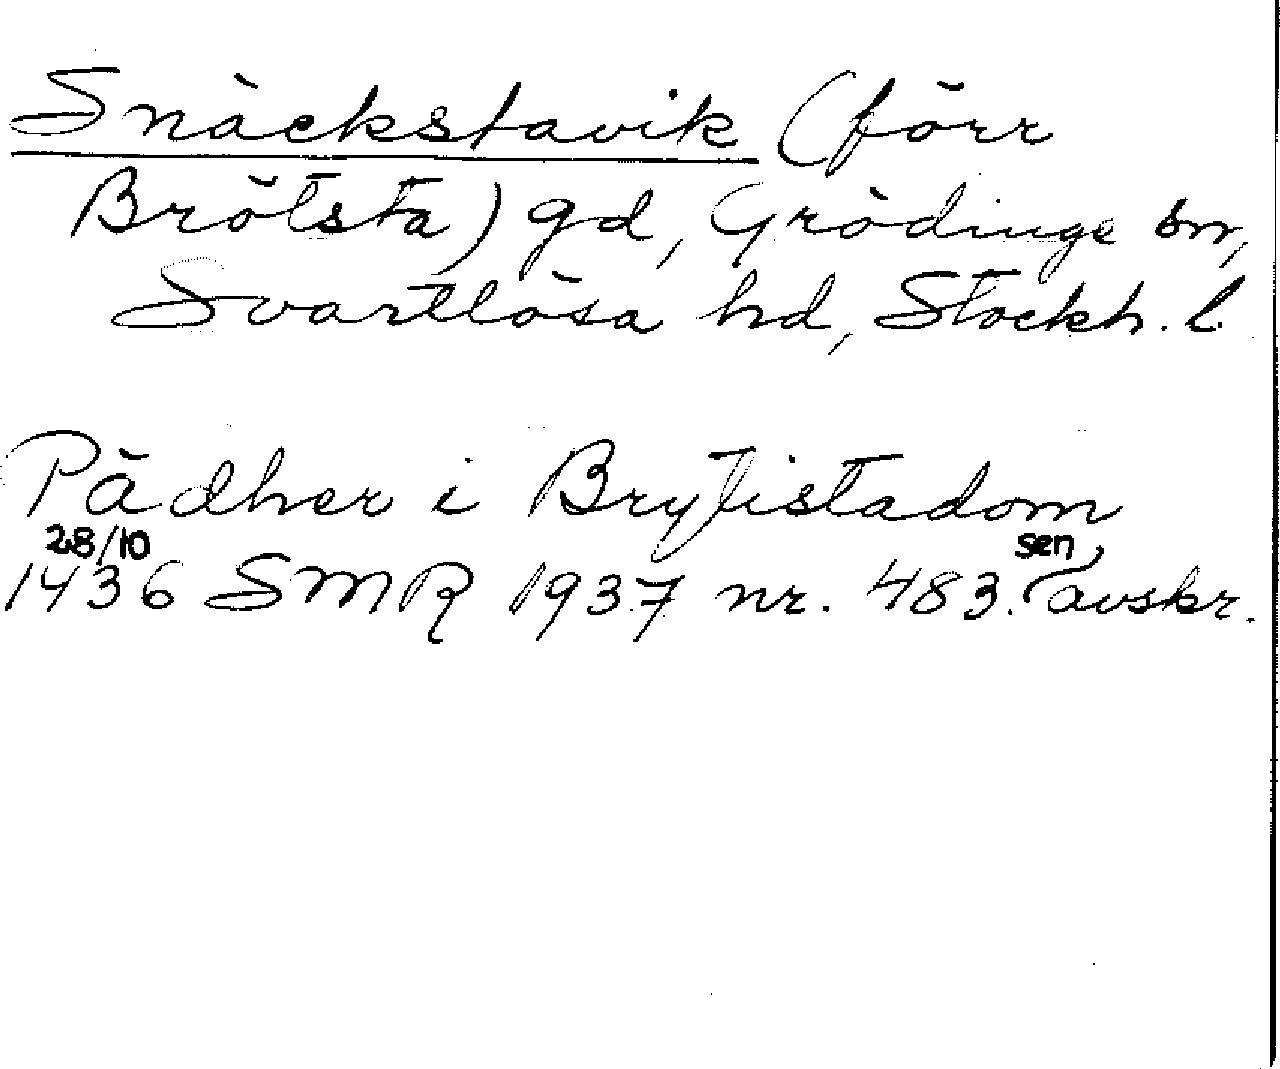 Snäckstavik (förr
Brötsta) gd, Grödinge sn,
Svartlösa hd, Stockh. l.
Pädher i Brytistadom
28/10 sen
1436 SMR 1937 nr. 483. avskr.